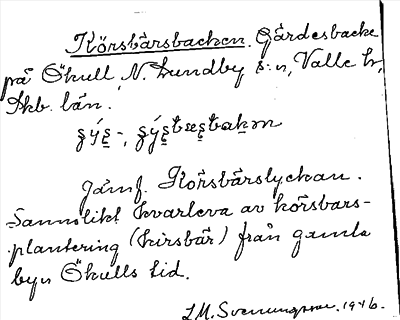 Körsbärsbacken. Gärdesbacke
på Ökull, N. Lundby s:n, Valle hd,
Skb. län.
Jämf. Körsbärslyckan.
Sannolikt kvarleva av körsbärs-
plantering (kirsbär) från gamla
byn Ökulls tid.
J.M. Svenungsson. 1946.